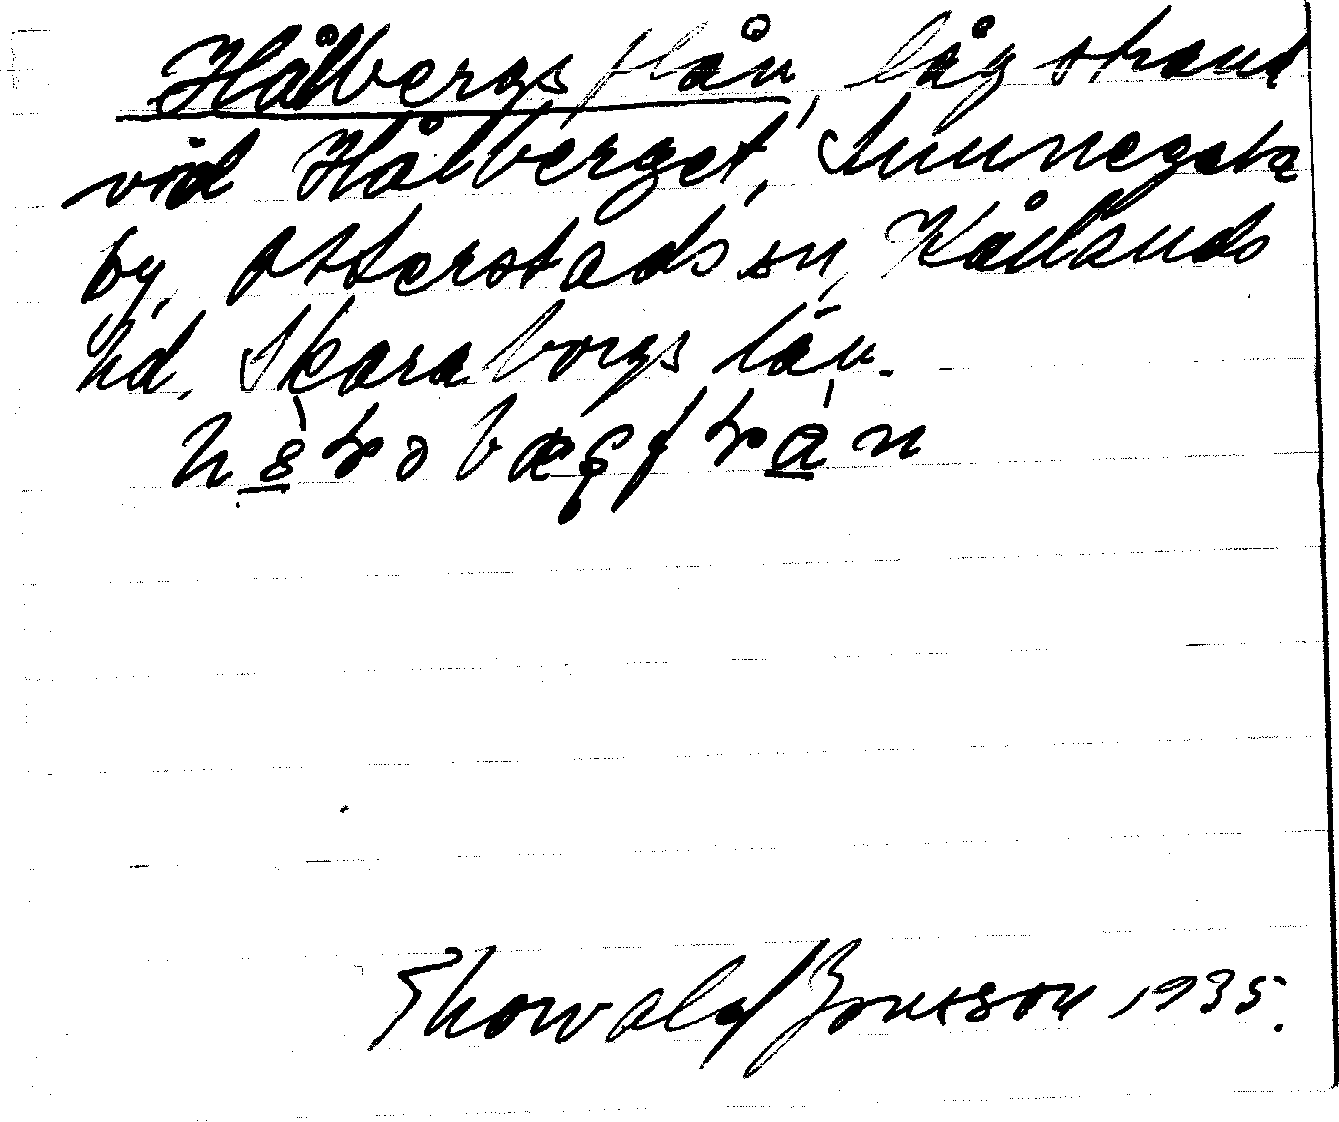 Hålbergsflån, låg strand
vid Hålberget, Sunnegata
by, Otterstads sn, Kållands
hd. Skaraborgs län.
Thorvald Jonsson 1935.